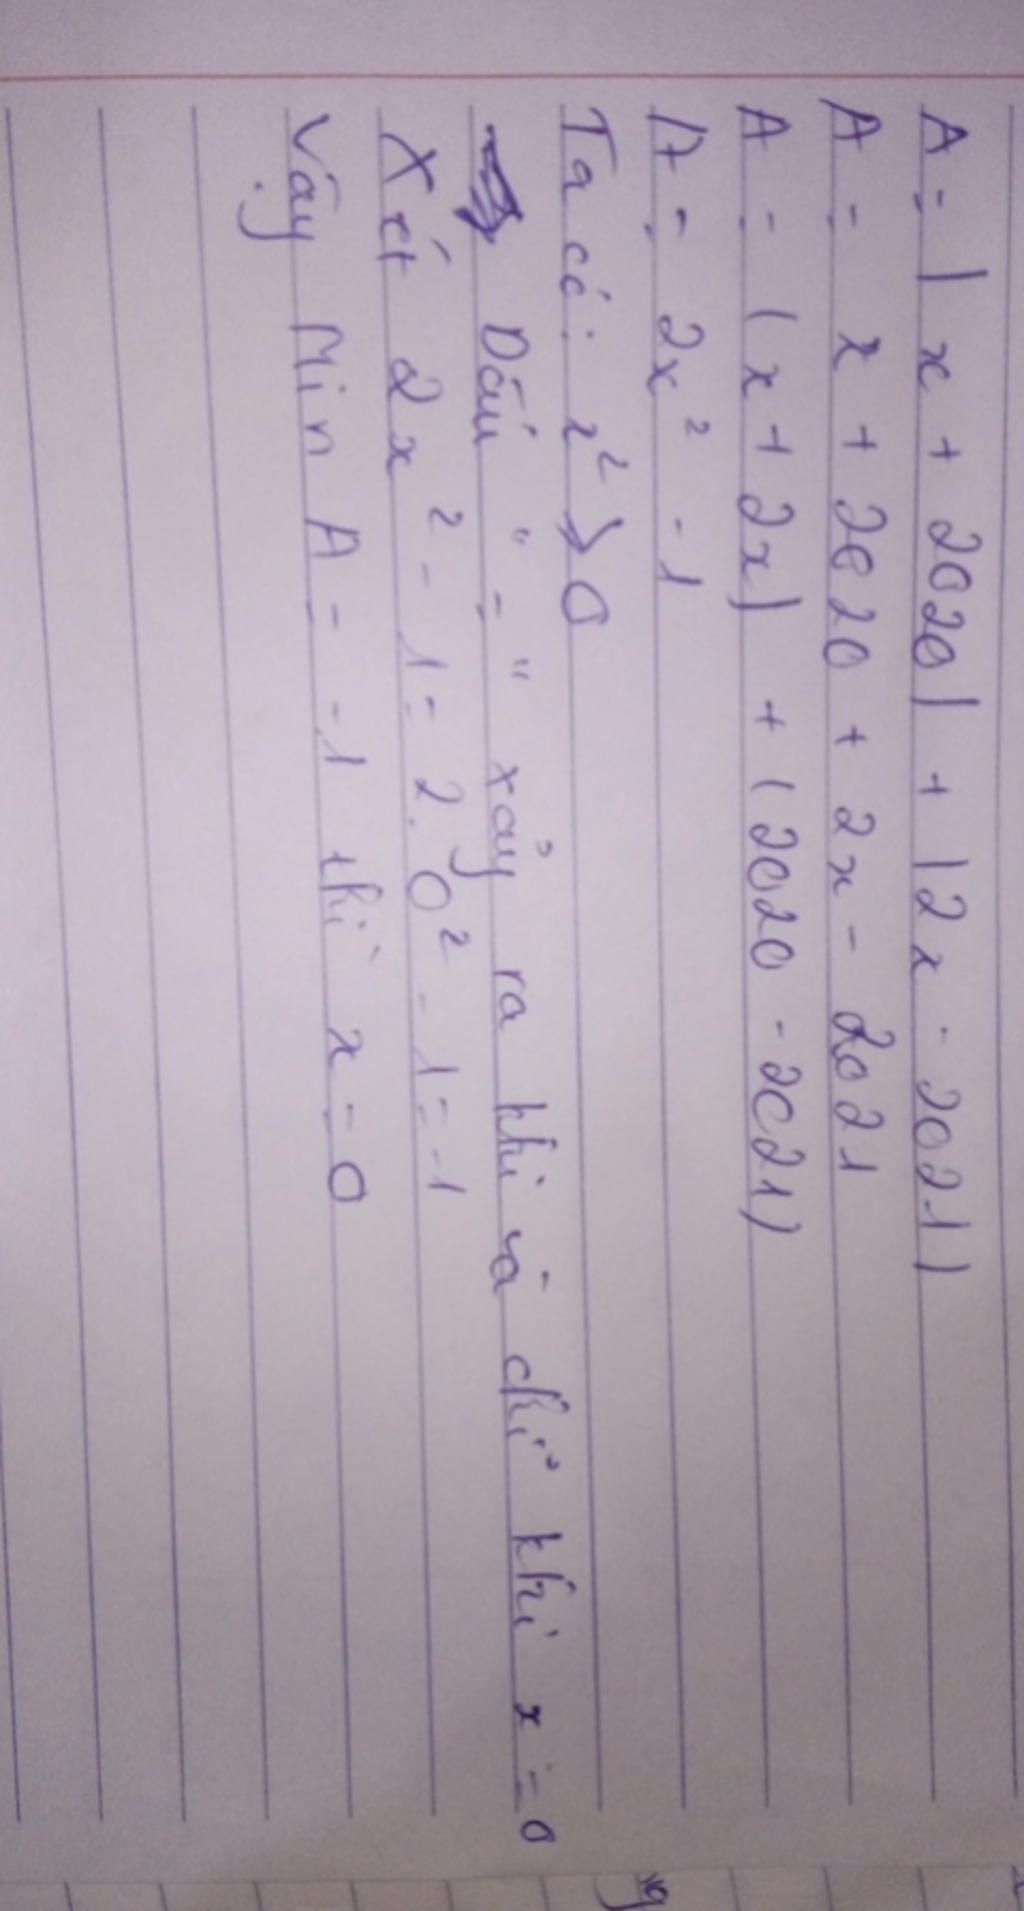 A = |x + 2020| + |2x - 2021|
A = x + 2020 + 2x - 2021
A = (x + 2x) + (2020 - 2021)
A = 2x² - 1
Ta có: x² ≥ 0
Dấu " = " xảy ra khi và chỉ khi x = 0
Xét 2x² - 1 = 2.0² - 1 = -1
Vậy Min A = -1 thì x = 0